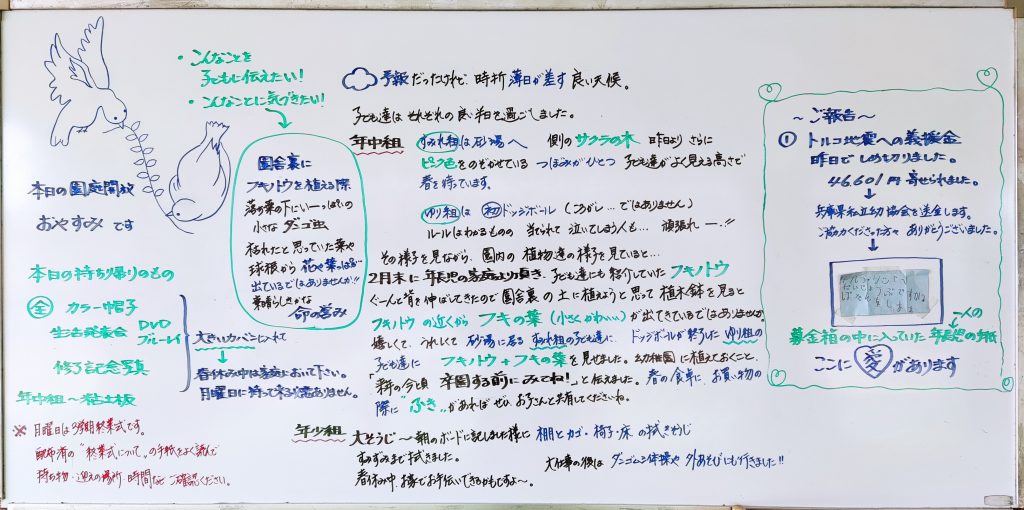 ・こんなことを
子どもに伝えたい！
・こんなことに気づきたい！
本日の園庭開放
おやすみ です
本日の持ち帰りのもの
全 カラー帽子
生活発表会 DVD
ブルーレイ
修了記念写真
年中組〜粘土板
大きいカバンに入れて
春休み中は家庭において下さい。
月曜日に持って来る必要ありません。
※ 月曜日は3学期終業式です。
配布済の“終業式について”の手紙をよく読んで
持ち物・迎えの場所・時間など ご確認ください。
園舎裏に
フキノトウを植える際
落ち葉の下にいーっぱいの
小さな ダンゴ虫
枯れたと思っていた葉や
球根から 花や葉っぱが
出ているではありませんか!!
素晴らしきかな
命の営み
予報だったけれど、時折 薄日が差す 良い天候。
子ども達は それぞれの良い1日を過ごしました。
年中組 すみれ組は 砂場へ 側の サクラの木 昨日より さらに
ピンク色をのぞかせている つぼみがひとつ 子ども達がよく見える高さで
春を待っています。
ゆり組は 初 ドッジボール （ころがし…ではありません）
ルールはわかるものの 当てられて 泣いてしまう人も… 頑張れー!!
その様子を見ながら、園内の 植物達の様子を見ていると…
2月末に 年長児の家庭より頂き、子ども達にも紹介していた フキノトウ
ぐーんと背を伸ばしてきたので 園舎裏の土に植えようと思って 植木鉢を見ると
フキノトウの近くから フキの葉（小さくかわいい）が出てきているではありませんか
嬉しくて、うれしくて 砂場に居る すみれ組の子ども達に、ドッジボールが終了した ゆり組の
子ども達に フキノトウ＋フキの葉 を見せました。幼稚園に植えておくこと、
「来年の今頃 卒園する前にみてね！」と伝えました。春の食卓に、お買い物の
際に“ふき”があれば ぜひ お子さんと共有してくださいね。
年少組 大そうじ〜朝のボードに記しました様に 棚とカゴ・椅子・床 の拭きそうじ
すみずみまで拭きました。
大仕事の後は ダンゴムシ体操や 外あそびにも行きました!!
春休み中、お家でお手伝いできるかもですよ〜。
〜ご報告〜
① トルコ地震への義援金
昨日で しめ切りました。
46,601円 寄せられました。
↓
兵庫県私立幼協会を送金します。
ご協力くださった方々 ありがとうございました。
↓
一人の
募金箱の中に入っていた 年長児の手紙
ここに 愛 があります